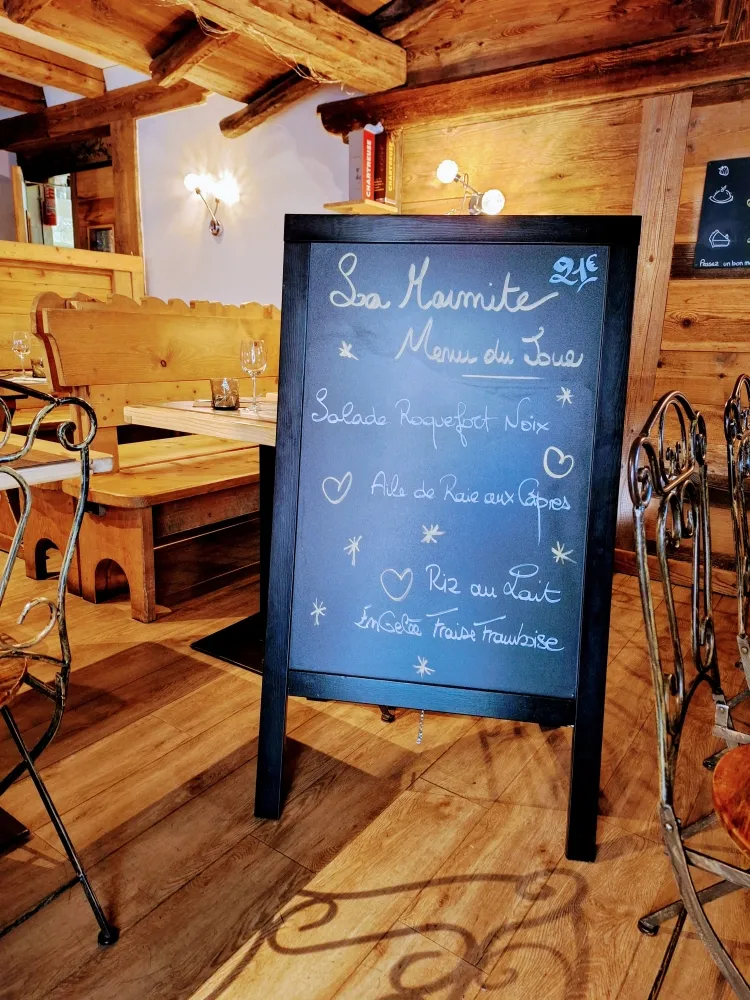 La Marmite
21€
Menu du Jour
Salade Roquefort Noix
Aile de Raie aux Câpres
Riz au Lait
En Gelée Fraise Framboise
CHARTREUSE
Passez un bon